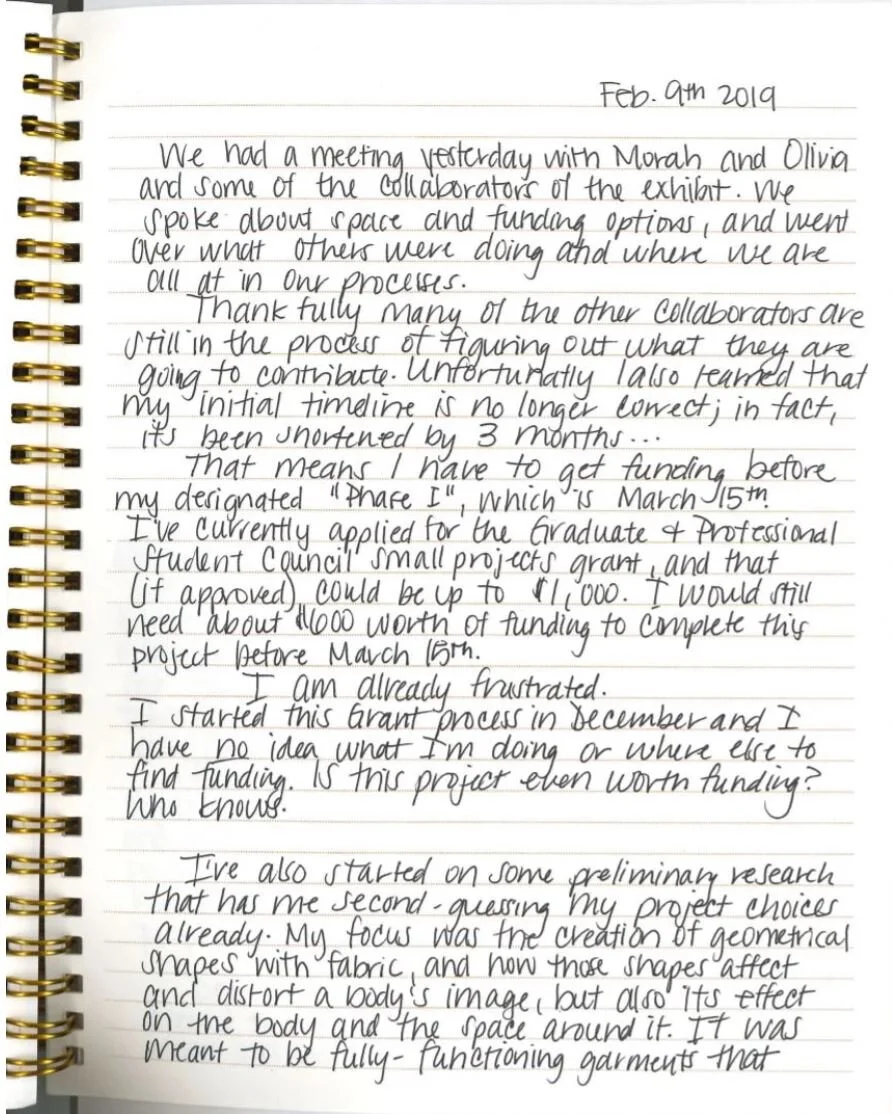 Feb. 9th 2019
We had a meeting yesterday with Morah and Olivia
and some of the collaborators of the exhibit. We
spoke about space and funding options, and went
over what others were doing and where we are
all at in our processes.
Thankfully many of the other collaborators are
still in the process of figuring out what they are
going to contribute. Unfortunatly I also learned that
my initial timeline is no longer correct; in fact,
its been shortened by 3 months...
That means I have to get funding before
my designated "Phase I", which is March 15th.
I've currently applied for the Graduate & Professional
Student Council small projects grant, and that
(if approved) could be up to $1,000. I would still
need about $600 worth of funding to complete this
project before March 15th.
I am already frustrated.
I started this Grant process in December and I
have no idea what I'm doing or where else to
find funding. Is this project even worth funding?
Who knows.
I've also started on some preliminary research
that has me second-guessing my project choices
already. My focus was the creation of geometrical
shapes with fabric, and how those shapes affect
and distort a body's image, but also its effect
on the body and the space around it. It was
meant to be fully-functioning garments that